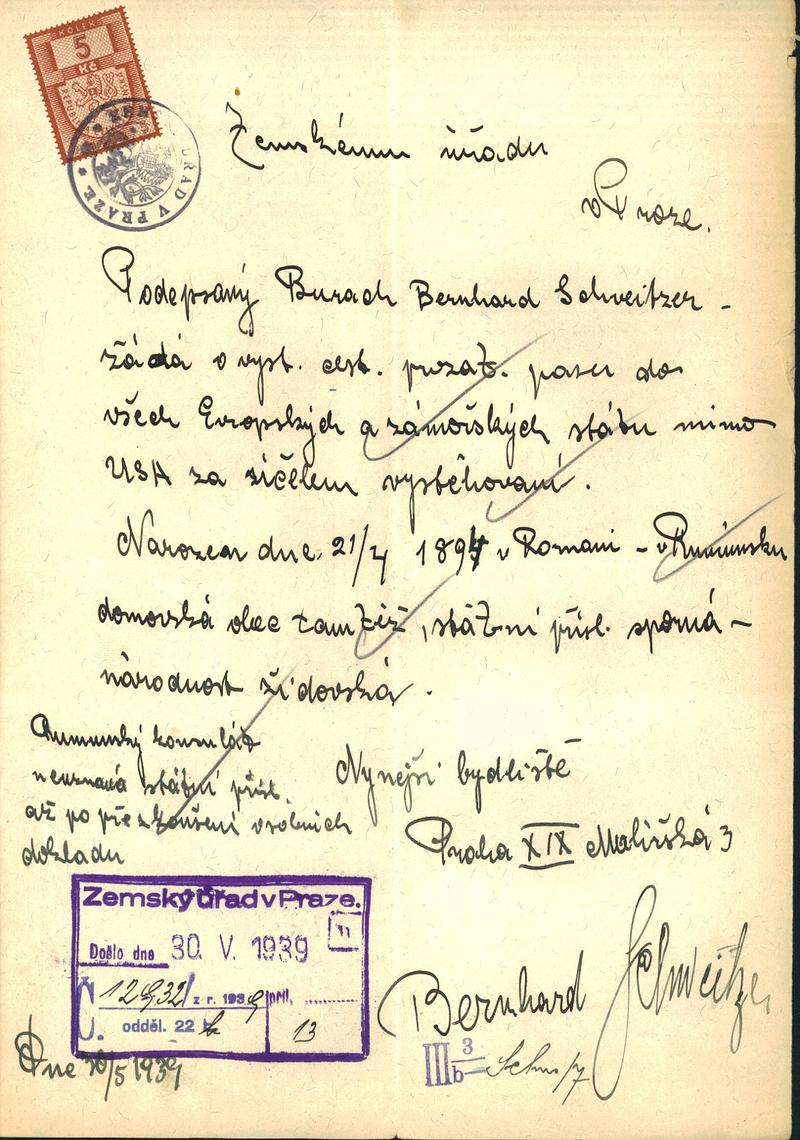 KOLEK
5
Kč
ÚŘAD V PRAZE
Zemskému úřadu
v Praze.
Podepsaný Burach Bernhard Schweitzer -
žádá o vyst. cest. prozat. pasu do
všech Evropských a zámořských státu mimo
USA za účelem vystěhovaní.
Narozen dne 21/4 1894 v Romani - v Rumunsku
domovská obec tamtéž, státní přísl. sporná -
národnost židovská.
Rumunský konsulát
neuznává státní přísl.
až po přezkoušení osobních
dokladu
Nynejší bydliště
Praha XIX Malířská 3
Zemský úřad v Praze.
Došlo dne 30. V. 1939
Č 12932/ z r. 1939 příl.
J. odděl. 22 b 13
Bernhard Schweitzer
Dne 30/5 1939
III 3
b